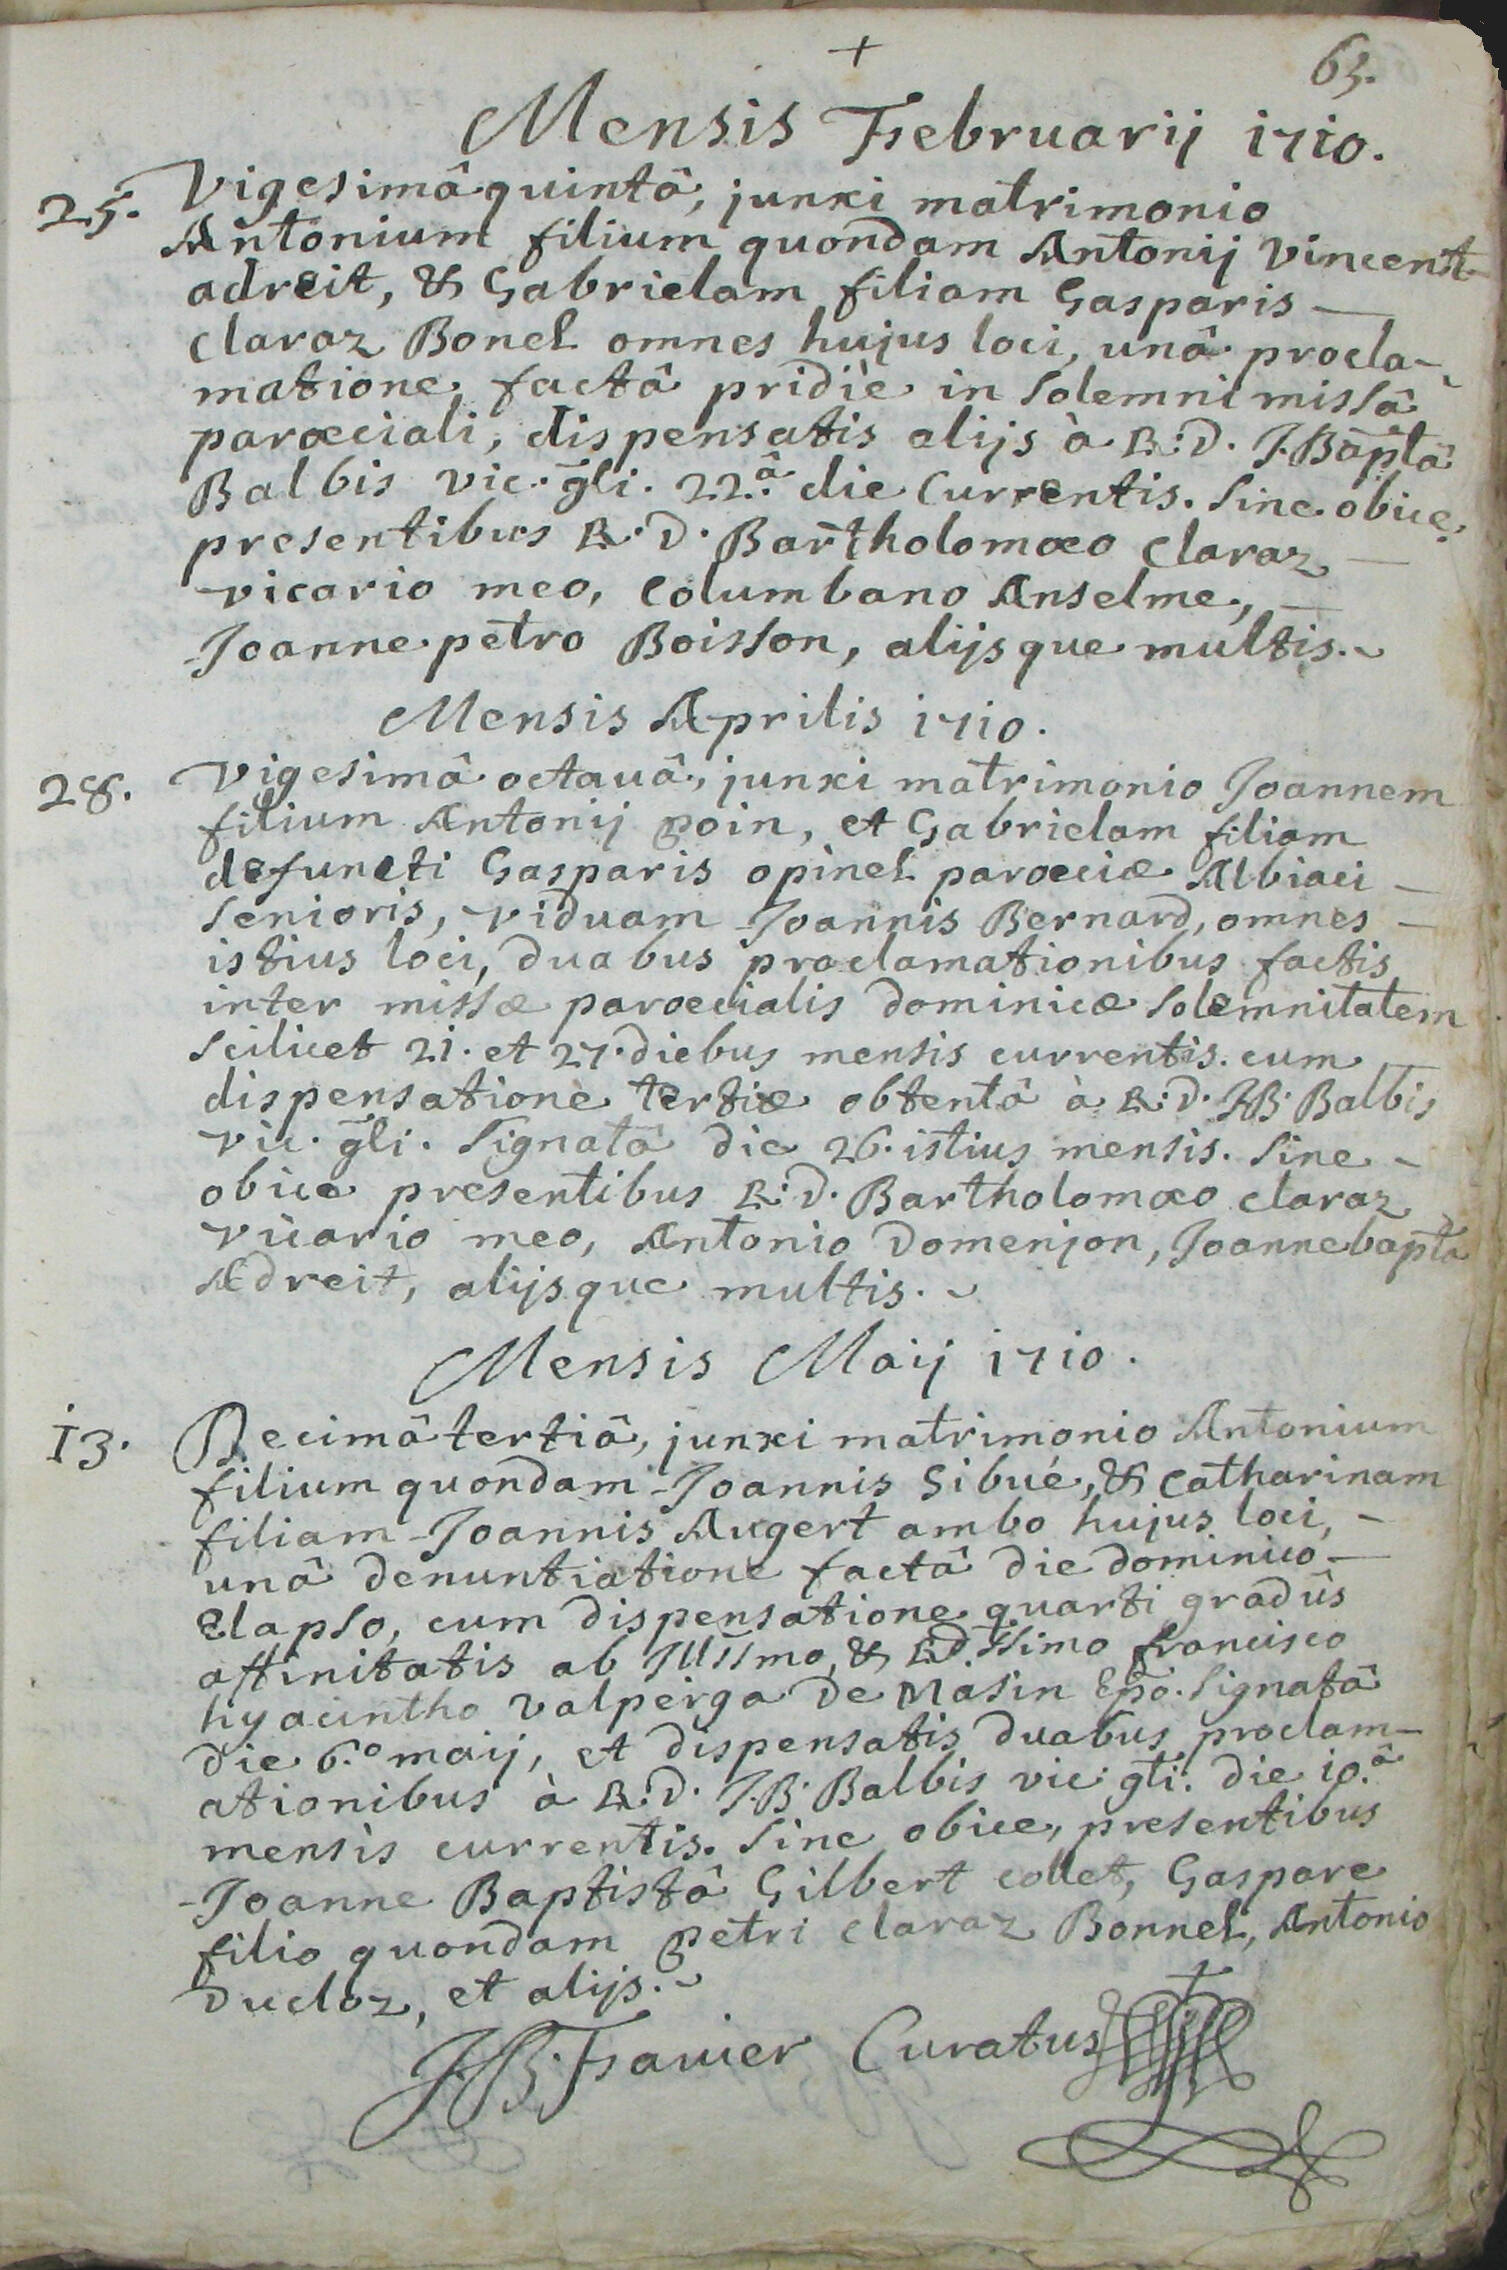 +
65.
Mensis Februarij 1710.
25. Vigesimâ quintâ, junxi matrimonio
Antonium filium quondam Antonij Vincent
adreit, & Gabrielam filiam Gasparis —
Claraz Bonel omnes hujus loci, unâ procla-
matione factâ pridiè in Solemni missâ
parœciali, dispensatis alijs à R:D. J.Bapta
Balbis vic. gli. 22.â die Currentis. Sine obice
presentibus R.D. Bartholomæo Claraz —
vicario meo, Columbano Anselme, —
Joanne petro Boisson, alijsque multis.
Mensis Aprilis 1710.
28. Vigesimâ octauâ, junxi matrimonio Joannem
filium Antonij goin, et Gabrielam filiam
defuncti Gasparis opinel parœciæ Albiaci —
Senioris, viduam Joannis Bernard, omnes —
istius loci, duabus proclamationibus factis
inter missæ parœcialis dominicæ Solemnitatem
Scilicet 21. et 27. diebus mensis currentis. cum
dispensatione tertiæ obtentâ à R:D. JB. Balbis
vic. gli. Signatâ die 26. istius mensis. Sine -
obice presentibus R:D. Bartholomæo claraz
vicario meo, Antonio Domenjon, Joannebapta
Adreit, alijsque multis.
Mensis Maij 1710.
13. Decimâ tertiâ, junxi matrimonio Antonium
filium quondam Joannis Sibué, & Catharinam
filiam Joannis Augert ambo hujus loci, -
unâ denuntiatione factâ die dominico —
Elapso, cum dispensatione quarti gradûs
affinitatis ab Jllssmo, & Rd.ssimo francisco
hyacintho Valperga De Masin Epo. Signatâ
die 6.º maij, et dispensatis duabus proclam-
ationibus à R:D. J.B. Balbis vic: gli. die 10.â
mensis currentis. Sine obice, presentibus
Joanne Baptistâ Gilbert collet, Gaspare
filio quondam petri claraz Bonnel, Antonio
Ducloz, et alijs.
JB. Favier Curatus